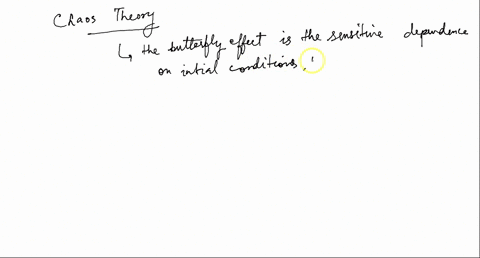 Chaos Theory
↳ the butterfly effect is the sensitive dependence
on intial conditions,